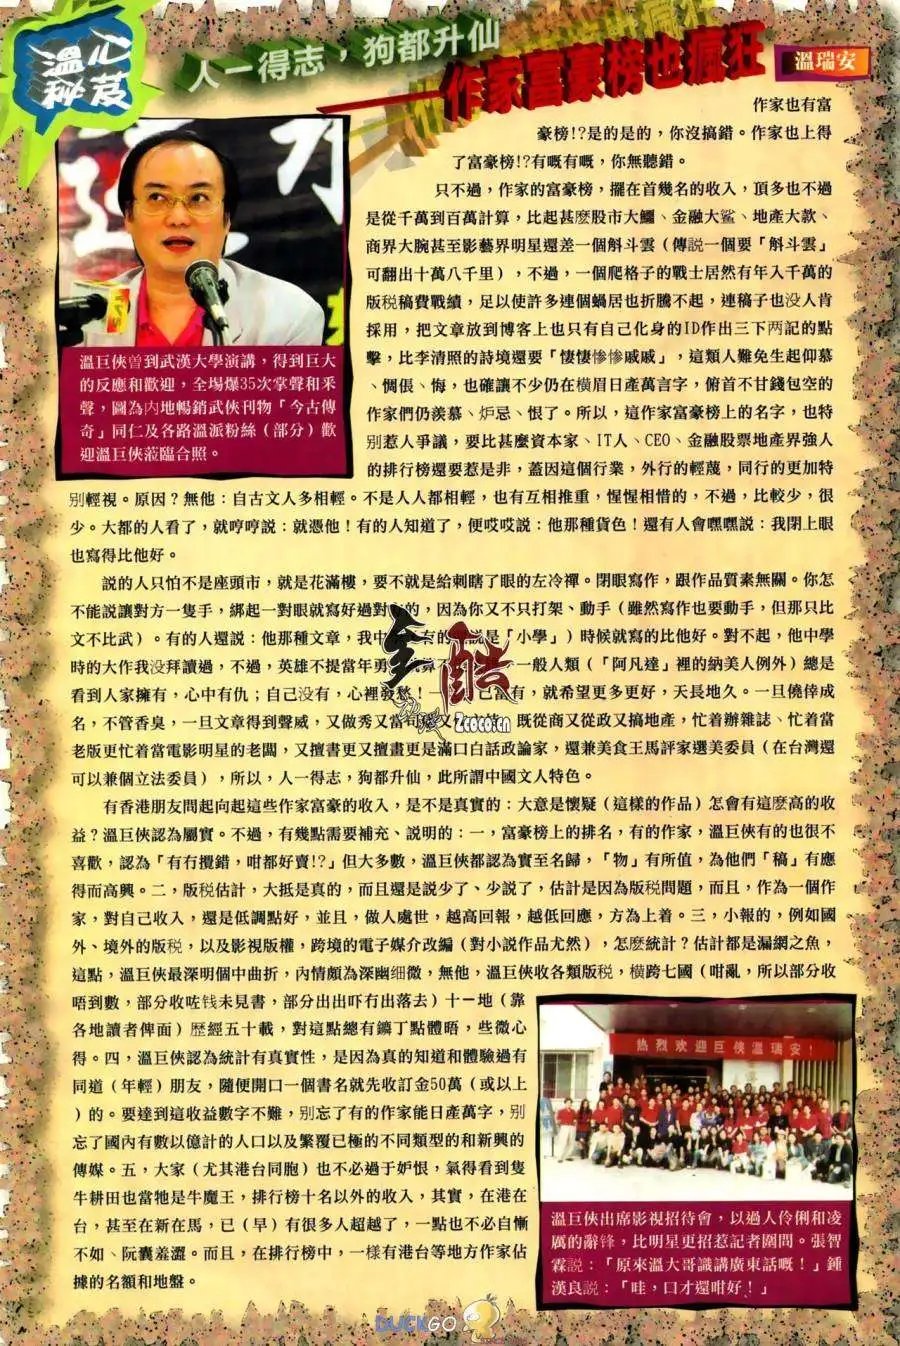 溫心
秘芨
人一得志，狗都升仙
作家富豪榜也瘋狂
溫瑞安
作家也有富
豪榜!?是的是的，你沒搞錯。作家也上得
了富豪榜!?有嘅有嘅，你無聽錯。
只不過，作家的富豪榜，擺在首幾名的收入，頂多也不過
是從千萬到百萬計算，比起甚麽股市大鱷、金融大鯊、地產大款、
商界大腕甚至影藝界明星還差一個斛斗雲（傳説一個要「斛斗雲」
可翻出十萬八千里），不過，一個爬格子的戰士居然有年入千萬的
版税稿費戰績，足以使許多連個蝸居也折騰不起，連稿子也没人肯
採用，把文章放到博客上也只有自己化身的ID作出三下两記的點
擊，比李清照的詩境還要「悽悽慘慘戚戚」，這類人難免生起仰慕
、惆倀、悔，也確讓不少仍在横眉日產萬言字，俯首不甘錢包空的
作家們仍羨慕、妒忌、恨了。所以，這作家富豪榜上的名字，也特
别惹人爭議，要比甚麽資本家、IT人、CEO、金融股票地產界強人
的排行榜還要惹是非，蓋因這個行業，外行的輕蔑，同行的更加特
别輕視。原因？無他：自古文人多相輕。不是人人都相輕，也有互相推重，惺惺相惜的，不過，比較少，很
少。大都的人看了，就哼哼説：就憑他！有的人知道了，便哎哎説：他那種貨色！還有人會嘿嘿説：我閉上眼
也寫得比他好。
説的人只怕不是座頭市，就是花滿樓，要不就是給刺瞎了眼的左冷禪。閉眼寫作，跟作品質素無關。你怎
不能説讓對方一隻手，綁起一對眼就寫好過對的，因為你又不只打架、動手（雖然寫作也要動手，但那只比
文不比武）。有的人還説：他那種文章，我中有的説是「小學」）時候就寫的比他好。對不起，他中學
時的大作我没拜讀過，不過，英雄不提當年勇，一般人類（「阿凡達」裡的納美人例外）總是
看到人家擁有，心中有仇；自己没有，心裡發愁！一己有，就希望更多更好，天長地久。一旦僥倖成
名，不管香臭，一旦文章得到聲威，又做秀又當又，既從商又從政又搞地產，忙着辦雜誌、忙着當
老版更忙着當電影明星的老闆，又擅書更又擅畫更是滿口白話政論家，還兼美食王馬評家選美委員（在台灣還
可以兼個立法委員），所以，人一得志，狗都升仙，此所謂中國文人特色。
有香港朋友問起向起這些作家富豪的收入，是不是真實的：大意是懷疑（這樣的作品）怎會有這麽高的收
益？溫巨俠認為屬實。不過，有幾點需要補充、説明的：一，富豪榜上的排名，有的作家，溫巨俠有的也很不
喜歡，認為「有冇攪錯，咁都好賣!?」但大多數，溫巨俠都認為實至名歸，「物」有所值，為他們「稿」有應
得而高興。二，版税估計，大抵是真的，而且還是説少了、少説了，估計是因為版税問題，而且，作為一個作
家，對自己收入，還是低調點好，並且，做人處世，越高回報，越低回應，方為上着。三，小報的，例如國
外、境外的版税，以及影視版權，跨境的電子媒介改編（對小説作品尤然），怎麽統計？估計都是漏網之魚，
這點，溫巨俠最深明個中曲折，內情頗為深幽细微，無他，溫巨俠收各類版税，横跨七國（咁亂，所以部分收
唔到數，部分收咗钱未見書，部分出出吓冇出落去）十一地（靠
各地讀者俾面）歷經五十載，對這點總有鑛丁點體晤，些微心
得。四，溫巨俠認為統計有真實性，是因為真的知道和體驗過有
同道（年輕）朋友，隨便開口一個書名就先收訂金50萬（或以上
）的。要達到這收益數字不難，别忘了有的作家能日產萬字，别
忘了國內有數以億計的人口以及繁覆已極的不同類型的和新興的
傳媒。五，大家（尤其港台同胞）也不必過于妒恨，氣得看到隻
牛耕田也當牠是牛魔王，排行榜十名以外的收入，其實，在港在
台，甚至在新在馬，已（早）有很多人超越了，一點也不必自慚
不如、阮囊羞澀。而且，在排行榜中，一樣有港台等地方作家佔
據的名額和地盤。
溫巨俠曾到武漢大學演講，得到巨大
的反應和歡迎，全場爆35次掌聲和釆
聲，圖為内地暢銷武俠刊物「今古傳
奇」同仁及各路溫派粉絲（部分）歡
迎溫巨俠蒞臨合照。
热烈欢迎巨俠溫瑞安！
溫巨俠出席影視招待會，以過人伶俐和凌
厲的辭锋，比明星更招惹記者圍問。張智
霖説：「原來溫大哥識講廣東話嘅！」鍾
漢良説：「哇，口才還咁好！」
2cococo.cn
DUCKGO